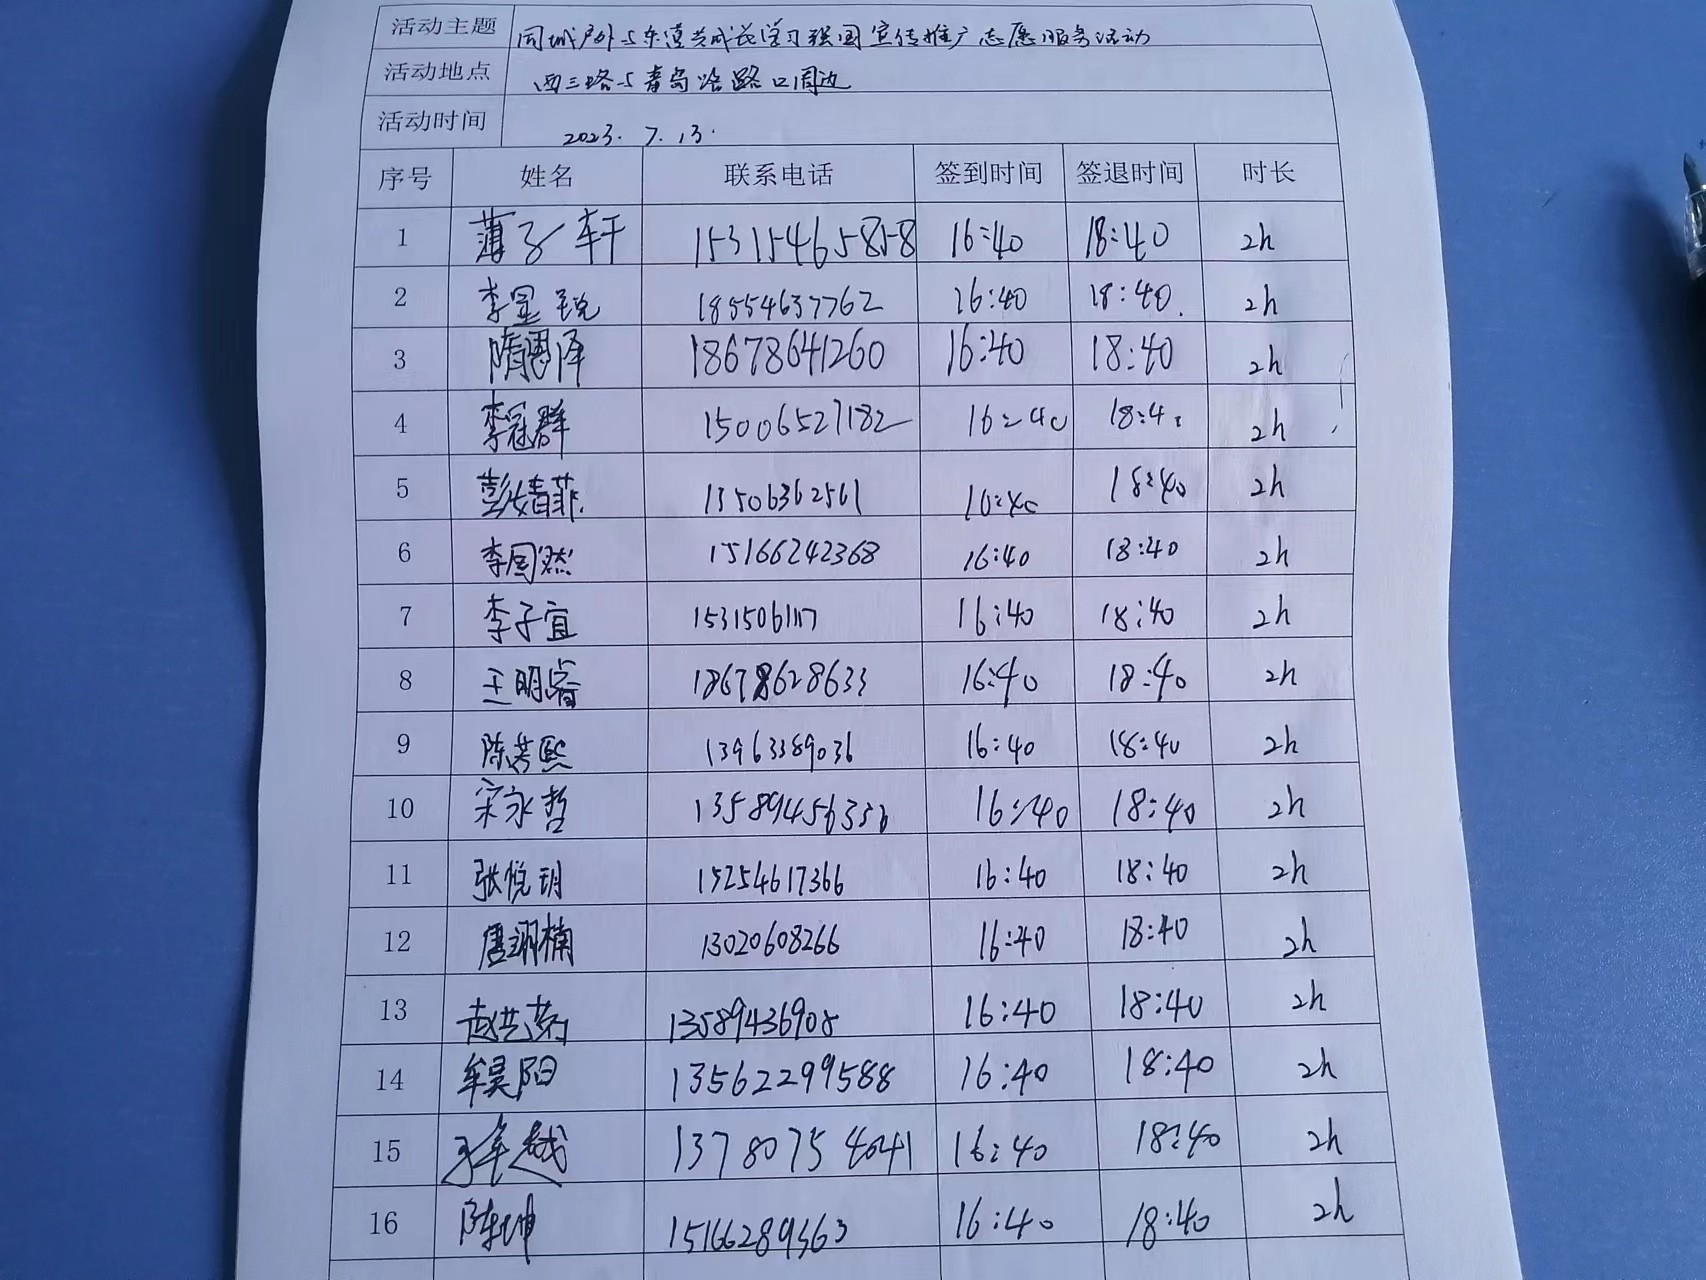 活动主题 同城户外与东营共成长学习强国宣传推广志愿服务活动
活动地点 西三路与青岛路路口周边
活动时间 2023.7.13.
序号 姓名 联系电话 签到时间 签退时间 时长
1 薄子轩 15315465858 16:40 18:40 2h
2 李星锐 18554637762 16:40 18:40. 2h
3 隋恩泽 18678641260 16:40 18:40 2h
4 李冠群 15006527182 16:40 18:40 2h
5 彭婧菲 13506362561 16:40 18:40 2h
6 李同然 15166242368 16:40 18:40 2h
7 李子宜 1531506117 16:40 18:40 2h
8 王明睿 18678628633 16:40 18:40 2h
9 陈芳熙 13963389036 16:40 18:40 2h
10 宋永哲 13589456336 16:40 18:40 2h
11 张悦玥 15254617366 16:40 18:40 2h
12 唐翊楠 13020608266 16:40 18:40 2h
13 赵艺菊 13589436908 16:40 18:40 2h
14 牟昊阳 13562299588 16:40 18:40 2h
15 卓越 13780754641 16:40 18:40 2h
16 陈坤 15166289363 16:40 18:40 2h